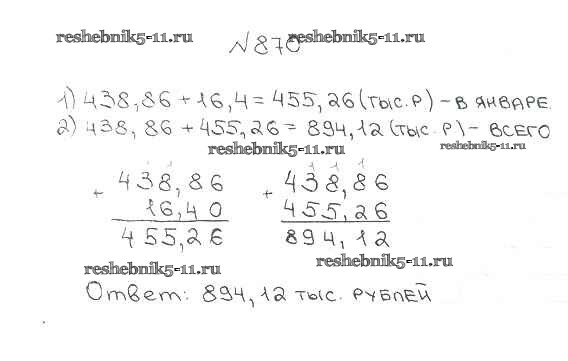 reshebnik5-11.ru
№870 reshebnik5-11.ru
1) 438,86 + 16,4 = 455,26 (тыс. р) - в январе.
2) 438,86 + 455,26 = 894,12 (тыс. р) - всего
reshebnik5-11.ru reshebnik5-11.ru
1 1 1 1 1
+ 438,86 + 438,86
16,40 455,26
455,26 894,12
reshebnik5-11.ru reshebnik5-11.ru
Ответ: 894,12 тыс. рублей